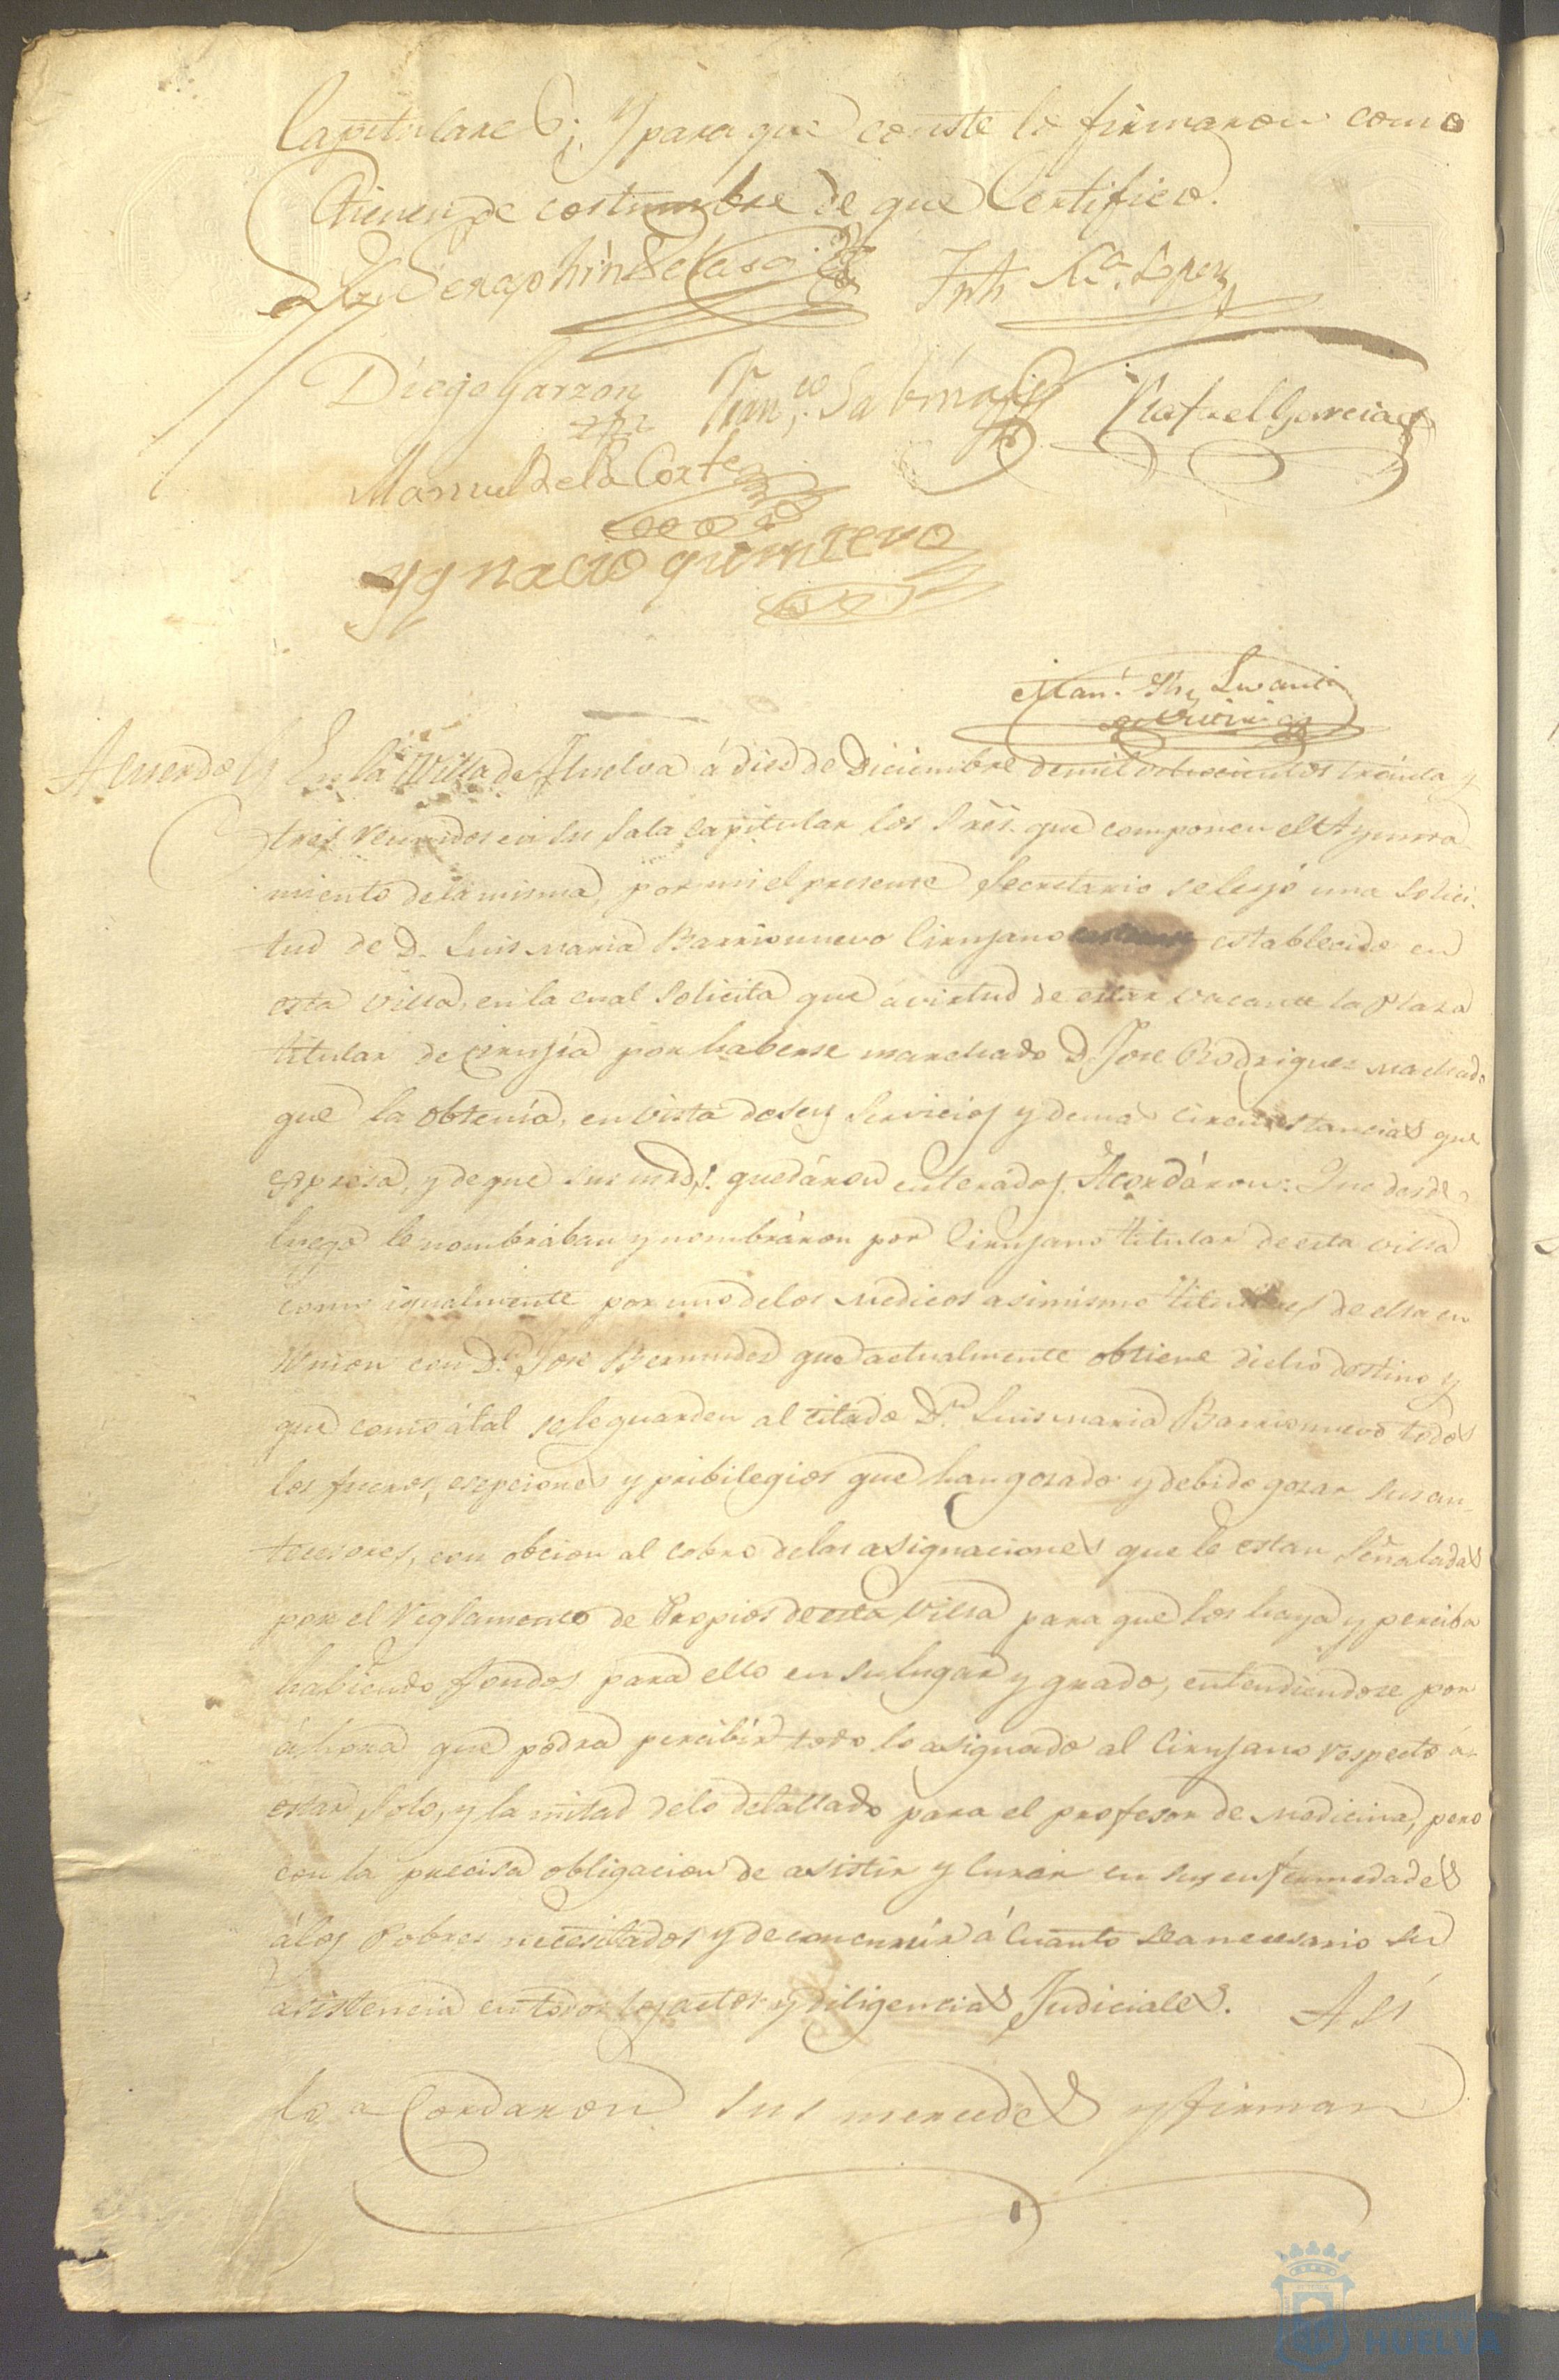 Capitulares; Y para que conste lo firmaron como
tienen de costumbre de que Certifico.
Seraphin Velasco
Nca. Lopez
Diego Garzon Franco. Rafael Garcia
Manuel de la Corte
Ygnacio quintero
Man.
Acuerdo En la Villa de Huelva á diez de Diciembre de mil ochocientos treinta y
tres, reunidos en su Sala capitular los Sres. que componen el Ayunta-
miento de la misma, por mi el presente Secretario se leyó una solici-
tud de D. Luis Maria Barrionuevo Cirujano establecido en
esta villa, en la cual solicita que á virtud de estar vacante la Plaza
titular de cirujía por haberse marchado D. Jose Rodriguez Machado
que la obtenía, en vista de sus servicios y demas circunstancias que
espresa, y de que sus mrds. quedáron enterados. Acordáron: Que desde
luego le nombraban y nombráron por Cirujano titular de esta villa
como igualmente por uno de los Medicos asimismo titulares de ella en
union con Dn. Jose Bermudez que actualmente obtiene dicho destino y
que como á tal se le guarden al citado Dn. Luis Maria Barrionuevo todos
los fueros, esepciones y pribilegios que han gozado y debido gozar sus an-
tecesores, con obcion al cobro de las asignaciones que le estan señaladas
por el Reglamento de Propios de esta Villa para que los haya y perciba
habiendo fondos para ello en su lugar y grado, entendiendose por
ahora que podra percibír todo lo asignado al Cirujano respecto á
estar solo, y la mitad de lo detallado para el profesor de Medicina, pero
con la precisa obligacion de asistir y curar en sus enfermedades
á los Pobres necesitados y de concurrír á cuanto sea necesario su
asistencia en todos los actos y diligencias Judiciales. Así
lo acordaron sus mercedes y firman
HUELVA